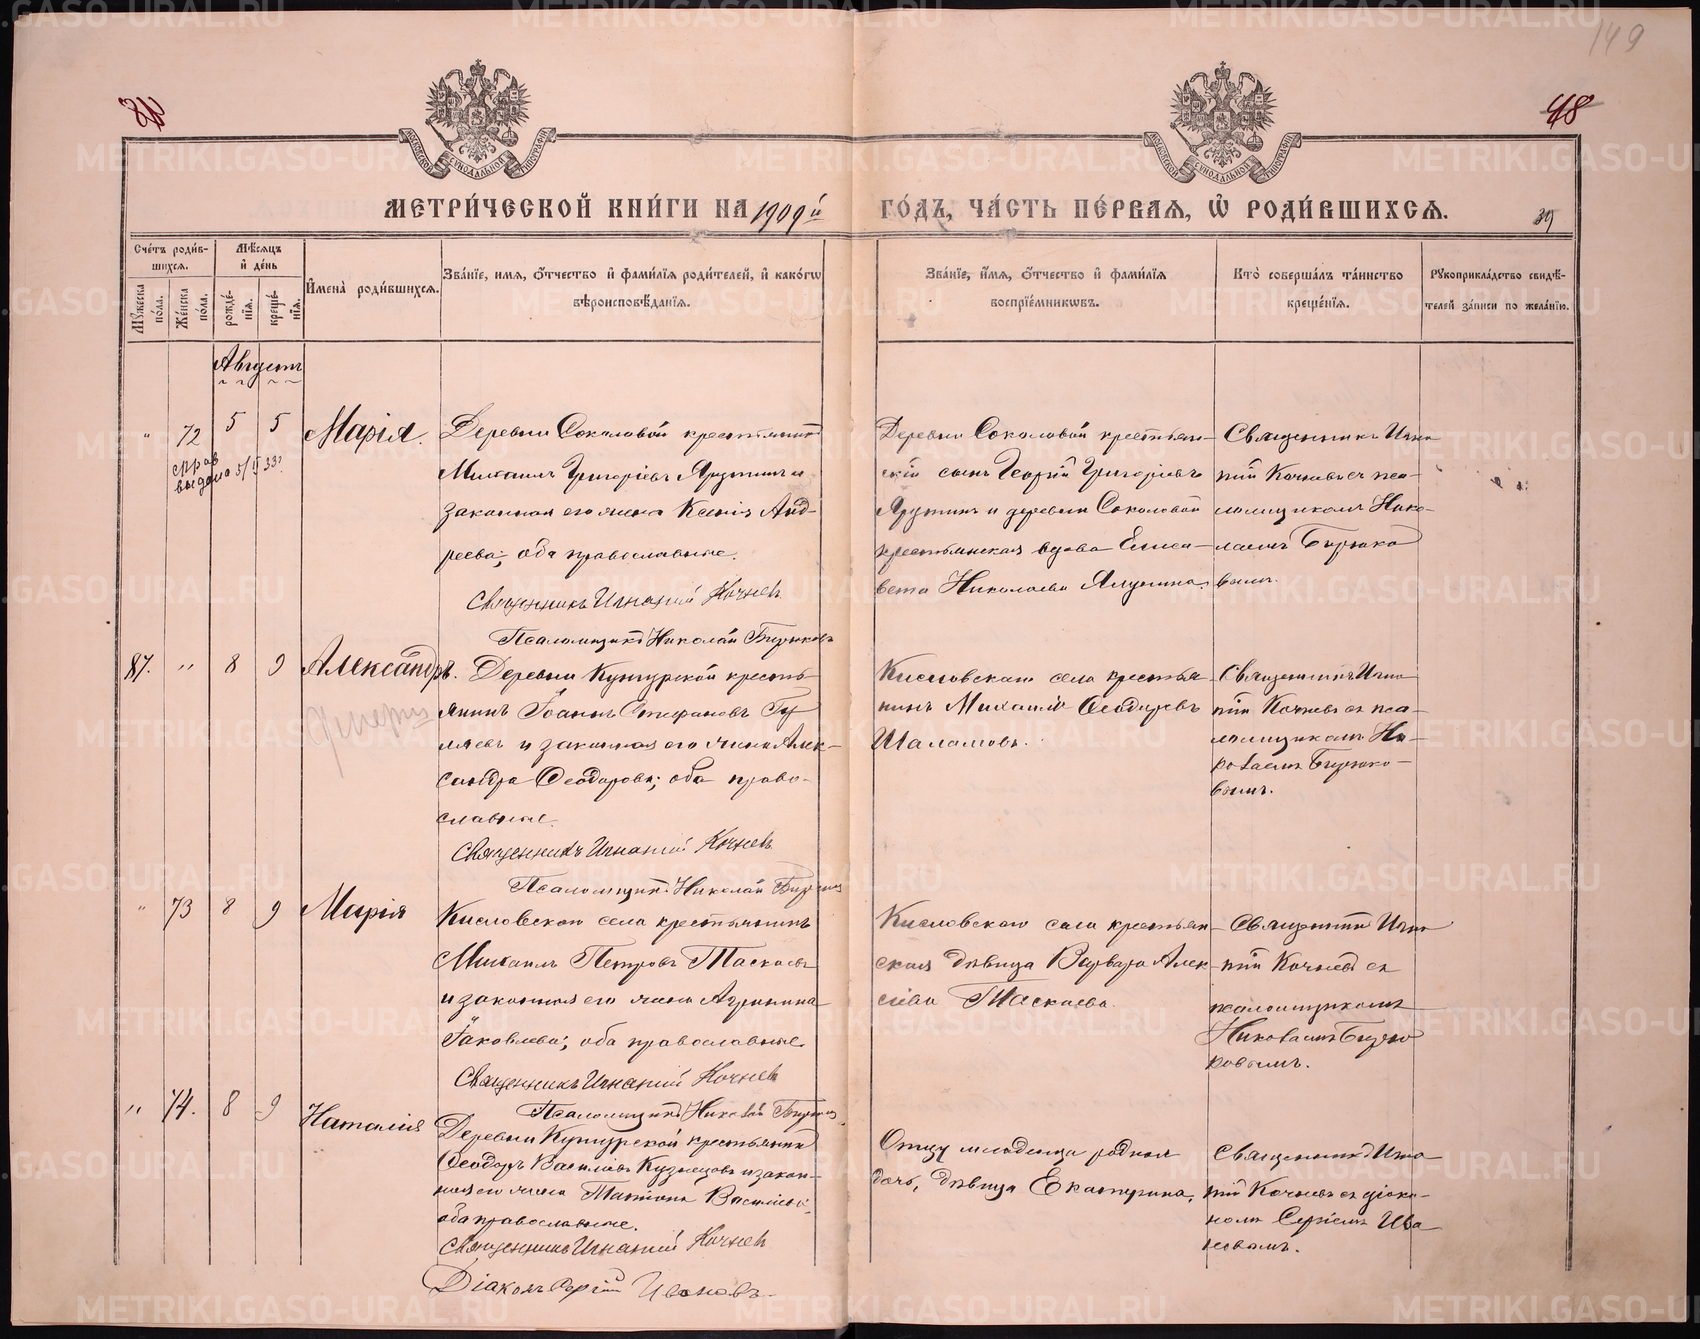 149
48
48
МОСКОВСКОЙ СѴНОДАЛЬНОЙ ТИПОГРАФІИ
МОСКОВСКОЙ СѴНОДАЛЬНОЙ ТИПОГРАФІИ
МЕТРИ́ЧЕСКОЙ КНИ́ГИ НА 1909й ГО́ДЪ, ЧА́СТЬ ПЕ́РВАЯ, Ѡ҆ РОДИ́ВШИХСѦ.
39
Сче́тъ роди́в-
шихсѧ.
Мꙋ́жеска по́ла.
Же́нска по́ла.
Мѣ́сѧцъ
и҆ де́нь
рожде́-
нїѧ.
креще́-
нїѧ.
И҆мена̀ роди́вшихсѧ.
Зва́нїе, и҆мѧ, ѻ҆́тчество и҆ фами́лїѧ роди́телей, и҆ како́гѡ
вѣроисповѣ́данїѧ.
Зва́нїе, и҆́мѧ, ѻ҆́тчество и҆ фами́лїѧ
воспрїе́мникѡвъ.
Кто̀ соверша́лъ та́инство
креще́нїѧ.
Рꙋкоприкла́дство свидѣ́-
телей за́писи по жела́нїю.
Августъ
" 72 5 5 Марія.
справ
выдана 5/II 33г
Деревни Соколовой крестьянинъ
Михаилъ Григоріевъ
законная его жена Ксенія Анд-
реева; оба православные.
Священникъ Игнатій Кочневъ
Псаломщикъ Николай Бирюковъ
Деревни Соколовой крестьян-
скій сынъ Георгій Григоріевъ
и деревни Соколовой
крестьянская вдова Елиса-
вета Николаева
Священникъ Игна-
тій Кочневъ съ пса-
ломщикомъ Нико-
лаемъ Бирюко-
вымъ.
87. " 8 9 Александръ.
умеръ
Деревни крестья-
нинъ Іоаннъ Стефановъ Гу-
ляевъ и законная его жена Алек-
сандра Ѳеодорова; оба право-
славные.
Священникъ Игнатій Кочневъ
Псаломщикъ Николай Бирюковъ
Кисловскаго села крестья-
нинъ Михаилъ Ѳеодоровъ
Шаламовъ.
Священникъ Игна-
тій Кочневъ съ пса-
ломщикомъ Ни-
колаемъ Бирюко-
вымъ.
" 73 8 9 Марія
Кисловскаго села крестьянинъ
Михаилъ Петровъ Таскаевъ
и законная его жена Агриппина
Іаковлева; оба православные.
Священникъ Игнатій Кочневъ
Псаломщикъ Николай Бирюковъ
Кисловскаго села крестьян-
ская дѣвица Варвара Алек-
сіева Таскаева.
Священникъ Игна-
тій Кочневъ съ
псаломщикомъ
Николаемъ Бирю-
ковымъ.
" 74. 8 9 Наталія
Деревни крестьянинъ
Ѳеодоръ Василіевъ Кузнецовъ и закон-
ная его жена Татіана Василіева;
оба православные.
Священникъ Игнатій Кочневъ
Діаконъ Сергій Ивановъ
Отцу младенца родная
дочь, дѣвица Екатерина.
Священникъ Игна-
тій Кочневъ съ діако-
номъ Сергіемъ Ива-
новымъ.
METRIKI.GASO-URAL.RU